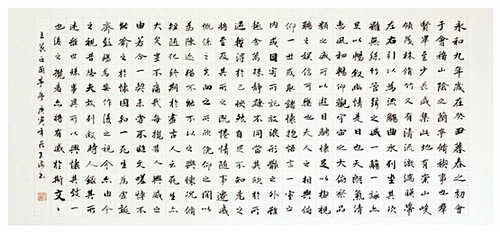 永和九年歲在癸丑暮春之初會
于會稽山陰之蘭亭脩稧事也群
賢畢至少長咸集此地有崇山峻
領茂林脩竹又有清流激湍暎帶
左右引以為流觴曲水列坐其次
雖無絲竹管弦之盛一觴一詠亦
足以暢敘幽情是日也天朗氣清
惠風和暢仰觀宇宙之大俯察品
類之盛所以遊目騁懷足以極視
聽之娛信可樂也夫人之相與俯
仰一世或取諸懷抱悟言一室之
內或因寄所託放浪形骸之外雖
趣舍萬殊靜躁不同當其欣於所
遇暫得於己快然自足不知老之將
至及其所之既惓情隨事遷感
慨係之矣向之所欣俛仰之間以
為陳迹猶不能不以之興懷況脩
短隨化終期於盡古人云死生亦
大矣豈不痛哉每攬昔人興感之
由若合一契未嘗不臨文嗟悼不
能喻之於懷固知一死生為虛誕
齊彭殤為妄作後之視今亦由今
之視昔悲夫故列敘時人錄其所
述雖世殊事異所以興懷其致一
也後之攬者亦將有感於斯文
王羲之蘭亭序